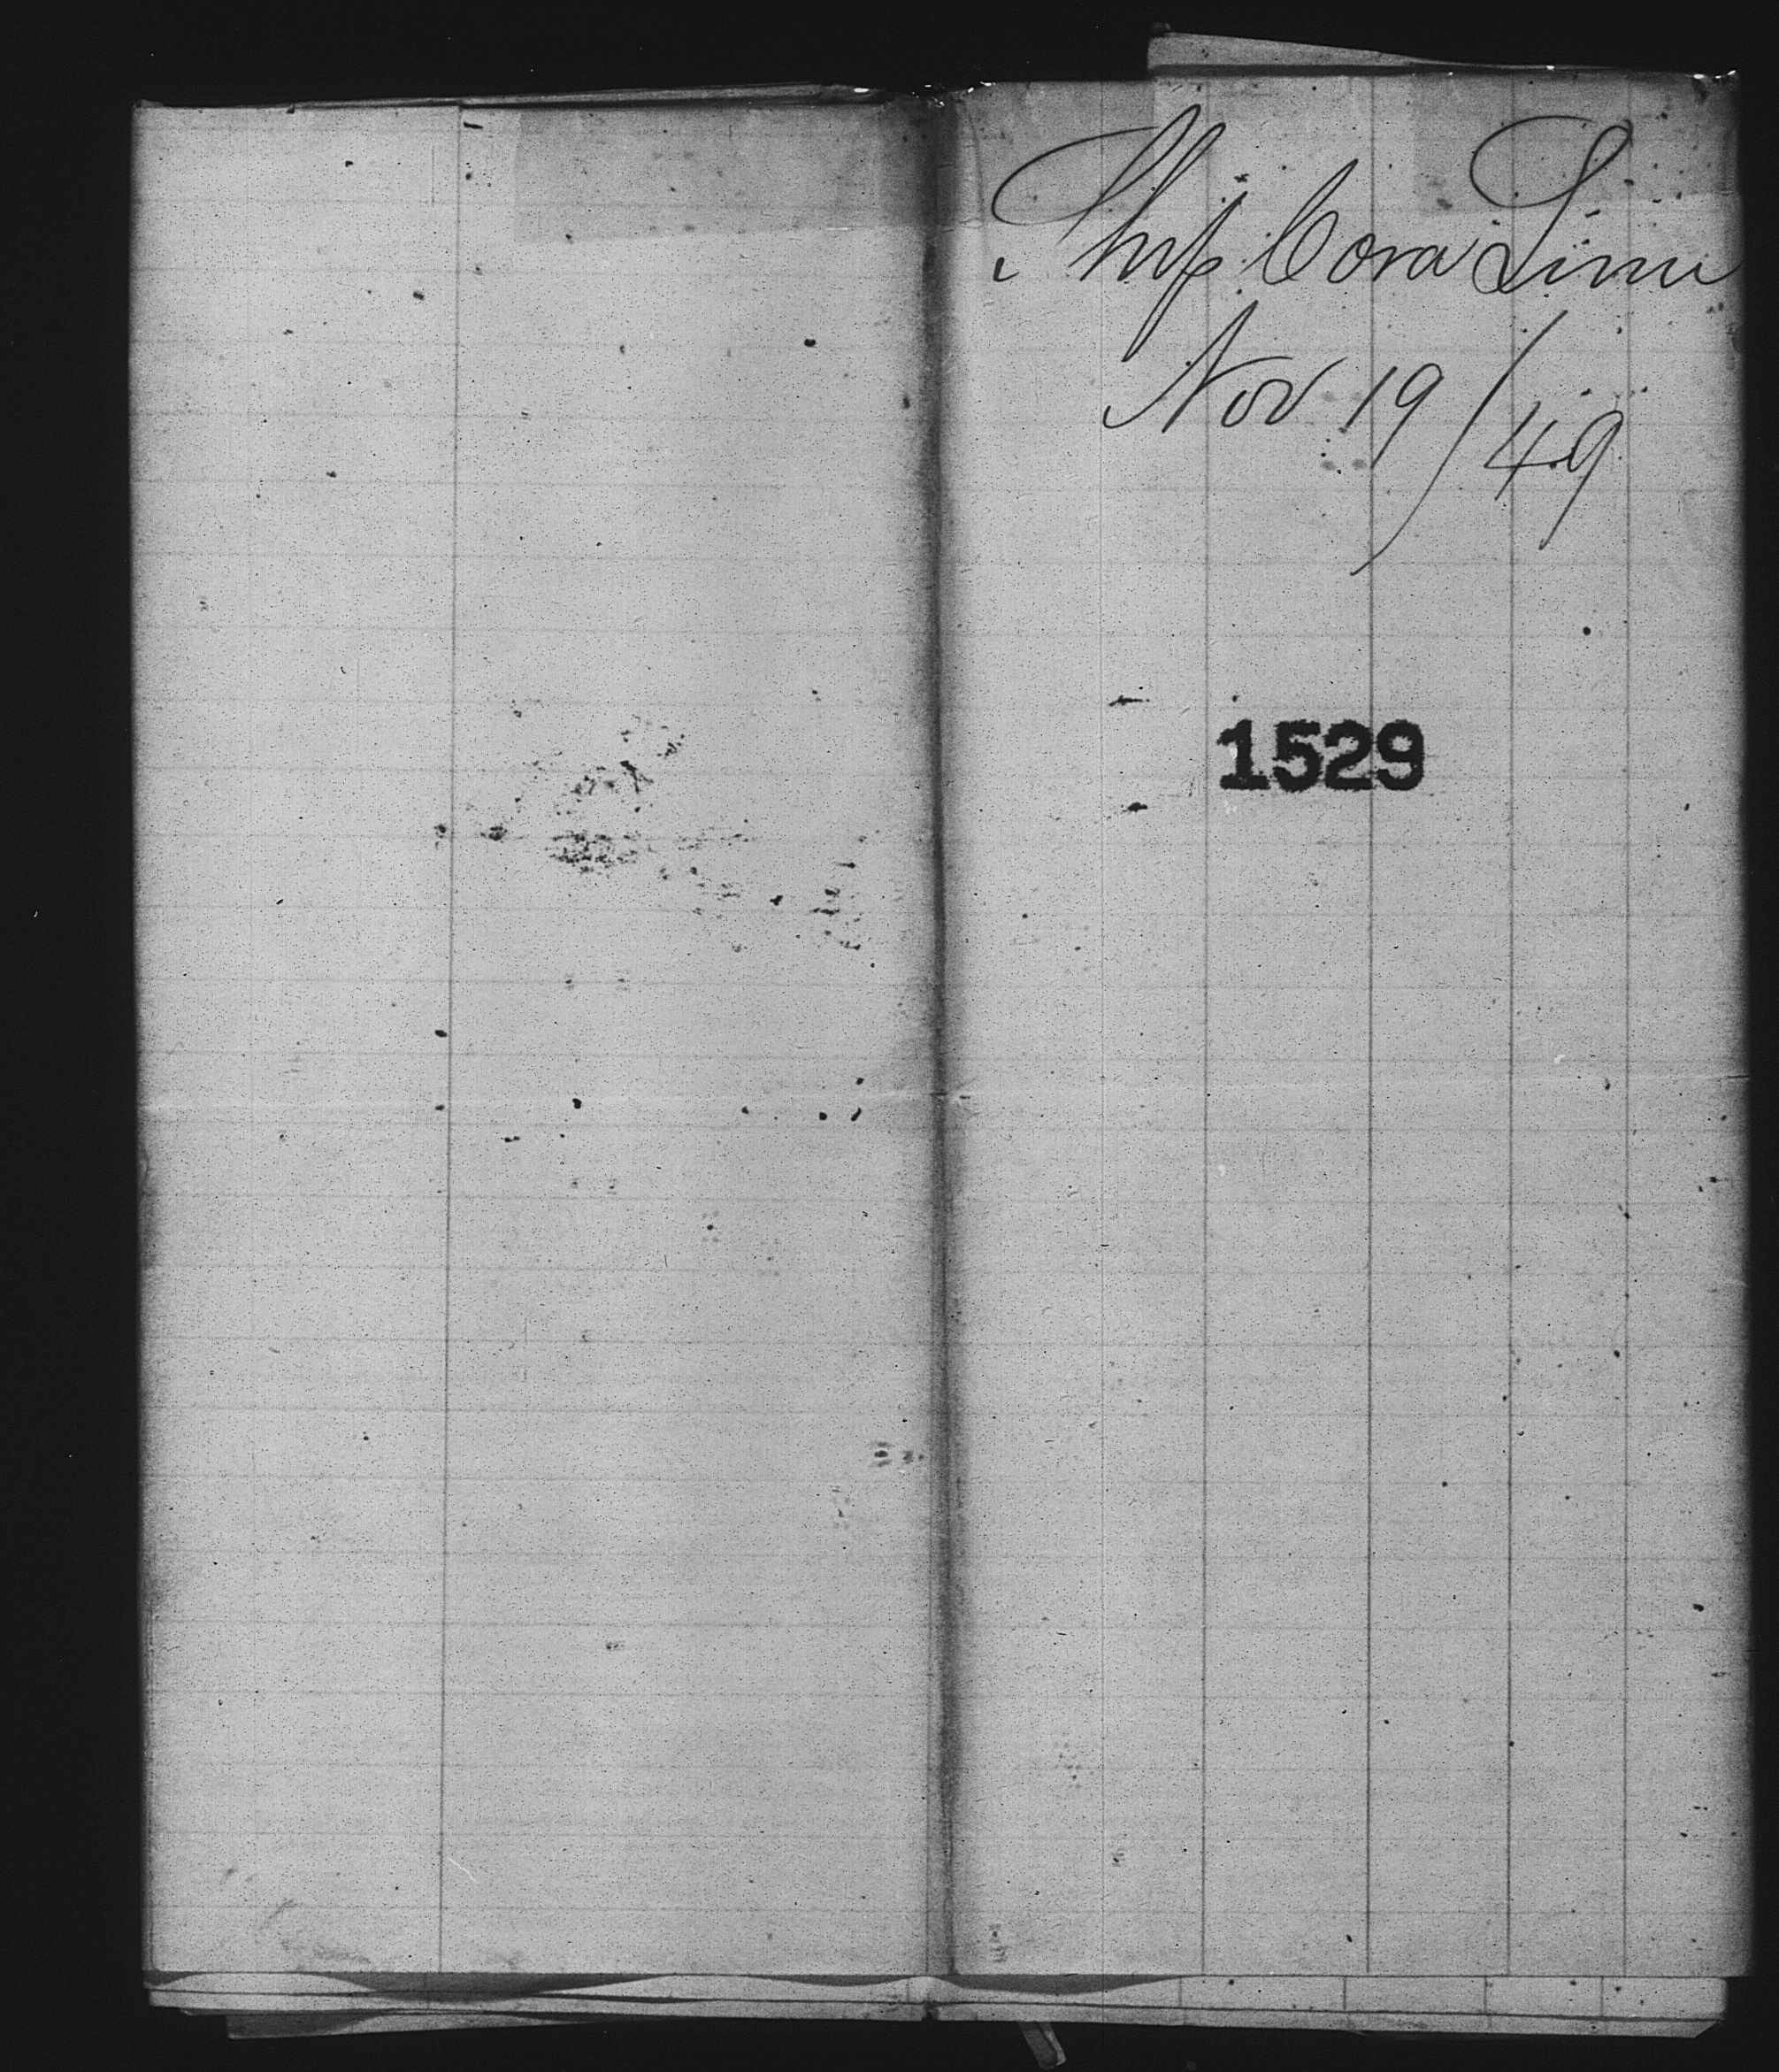 Ship Cora Linn
Nov 19/49
1529